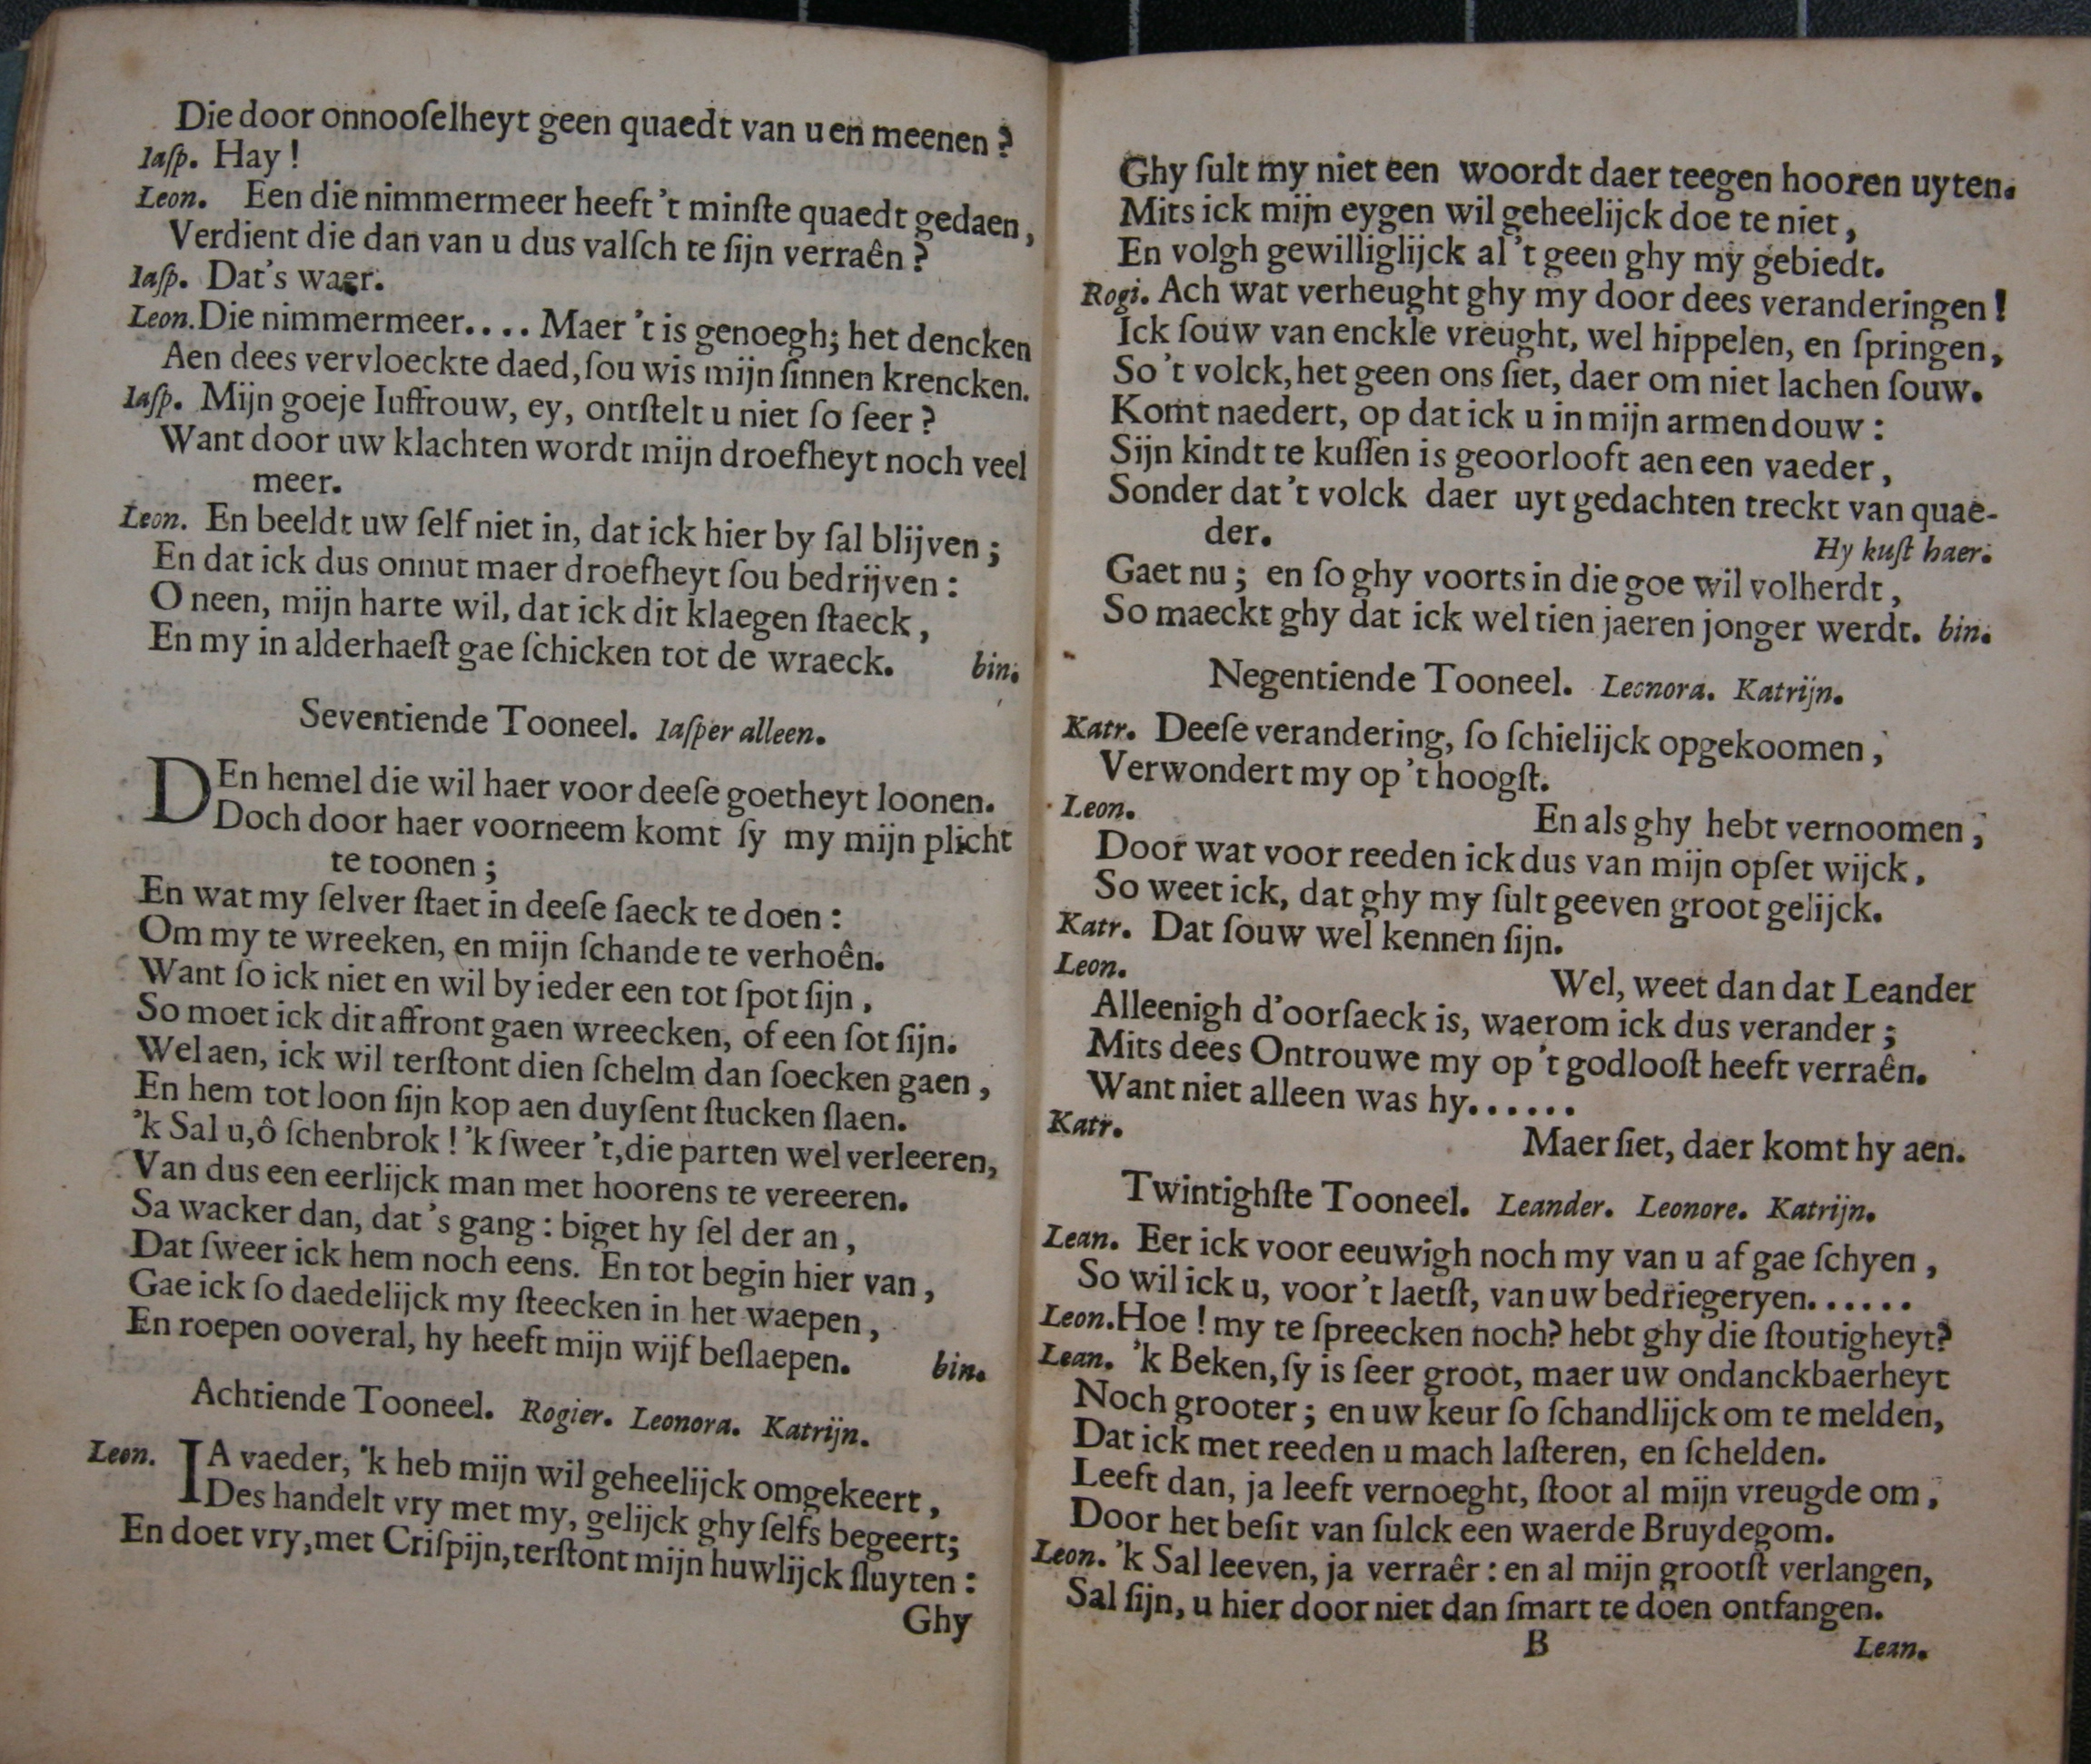 Die door onnooſelheyt geen quaedt van u en meenen?
Iaſp. Hay!
Leon. Een die nimmermeer heeft 't minſte quaedt gedaen,
Verdient die dan van u dus valſch te ſijn verraên?
Iaſp. Dat's waer.
Leon. Die nimmermeer.... Maer 't is genoegh; het dencken
Aen dees vervloeckte daed, ſou wis mijn ſinnen krencken.
Iaſp. Mijn goeje Iuffrouw, ey, ontſtelt u niet ſo ſeer?
Want door uw klachten wordt mijn droefheyt noch veel
meer.
Leon. En beeldt uw ſelf niet in, dat ick hier by ſal blijven;
En dat ick dus onnut maer droefheyt ſou bedrijven:
O neen, mijn harte wil, dat ick dit klaegen ſtaeck,
En my in alderhaeſt gae ſchicken tot de wraeck. bin.
Seventiende Tooneel. Iaſper alleen.
DEn hemel die wil haer voor deeſe goetheyt loonen.
Doch door haer voorneem komt ſy my mijn plicht
te toonen;
En wat my ſelver ſtaet in deeſe ſaeck te doen:
Om my te wreeken, en mijn ſchande te verhoên.
Want ſo ick niet en wil by ieder een tot ſpot ſijn,
So moet ick dit affront gaen wreecken, of een ſot ſijn.
Wel aen, ick wil terſtont dien ſchelm dan ſoecken gaen,
En hem tot loon ſijn kop aen duyſent ſtucken ſlaen.
'k Sal u, ô ſchenbrok! 'k ſweer 't, die parten wel verleeren,
Van dus een eerlijck man met hoorens te vereeren.
Sa wacker dan, dat 's gang: biget hy ſel der an,
Dat ſweer ick hem noch eens. En tot begin hier van,
Gae ick ſo daedelijck my ſteecken in het waepen,
En roepen ooveral, hy heeft mijn wijf beſlaepen. bin.
Achtiende Tooneel. Rogier. Leonora. Katrijn.
Leon. IA vaeder, 'k heb mijn wil geheelijck omgekeert,
Des handelt vry met my, gelijck ghy ſelfs begeert;
En doet vry, met Criſpijn, terſtont mijn huwlijck ſluyten:
Ghy
Ghy ſult my niet een woordt daer teegen hooren uyten.
Mits ick mijn eygen wil geheelijck doe te niet,
En volgh gewilliglijck al 't geen ghy my gebiedt.
Rogi. Ach wat verheught ghy my door dees veranderingen!
Ick ſouw van enckle vreught, wel hippelen, en ſpringen,
So 't volck, het geen ons ſiet, daer om niet lachen ſouw.
Komt naedert, op dat ick u in mijn armen douw:
Sijn kindt te kuſſen is geoorlooft aen een vaeder,
Sonder dat 't volck daer uyt gedachten treckt van quae-
der.
Hy kuſt haer.
Gaet nu; en ſo ghy voorts in die goe wil volherdt,
So maeckt ghy dat ick wel tien jaeren jonger werdt. bin.
Negentiende Tooneel. Leonora. Katrijn.
Katr. Deeſe verandering, ſo ſchielijck opgekoomen,
Verwondert my op 't hoogſt.
Leon. En als ghy hebt vernoomen,
Door wat voor reeden ick dus van mijn opſet wijck,
So weet ick, dat ghy my ſult geeven groot gelijck.
Katr. Dat ſouw wel kennen ſijn.
Leon. Wel, weet dan dat Leander
Alleenigh d'oorſaeck is, waerom ick dus verander;
Mits dees Ontrouwe my op 't godlooſt heeft verraên.
Want niet alleen was hy......
Katr. Maer ſiet, daer komt hy aen.
Twintighſte Tooneel. Leander. Leonore. Katrijn.
Lean. Eer ick voor eeuwigh noch my van u af gae ſchyen,
So wil ick u, voor 't laetſt, van uw bedriegeryen......
Leon. Hoe! my te ſpreecken noch? hebt ghy die ſtoutigheyt?
Lean. 'k Beken, ſy is ſeer groot, maer uw ondanckbaerheyt
Noch grooter; en uw keur ſo ſchandlijck om te melden,
Dat ick met reeden u mach laſteren, en ſchelden.
Leeft dan, ja leeft vernoeght, ſtoot al mijn vreugde om,
Door het beſit van ſulck een waerde Bruydegom.
Leon. 'k Sal leeven, ja verraêr: en al mijn grootſt verlangen,
Sal ſijn, u hier door niet dan ſmart te doen ontfangen.
B Lean.